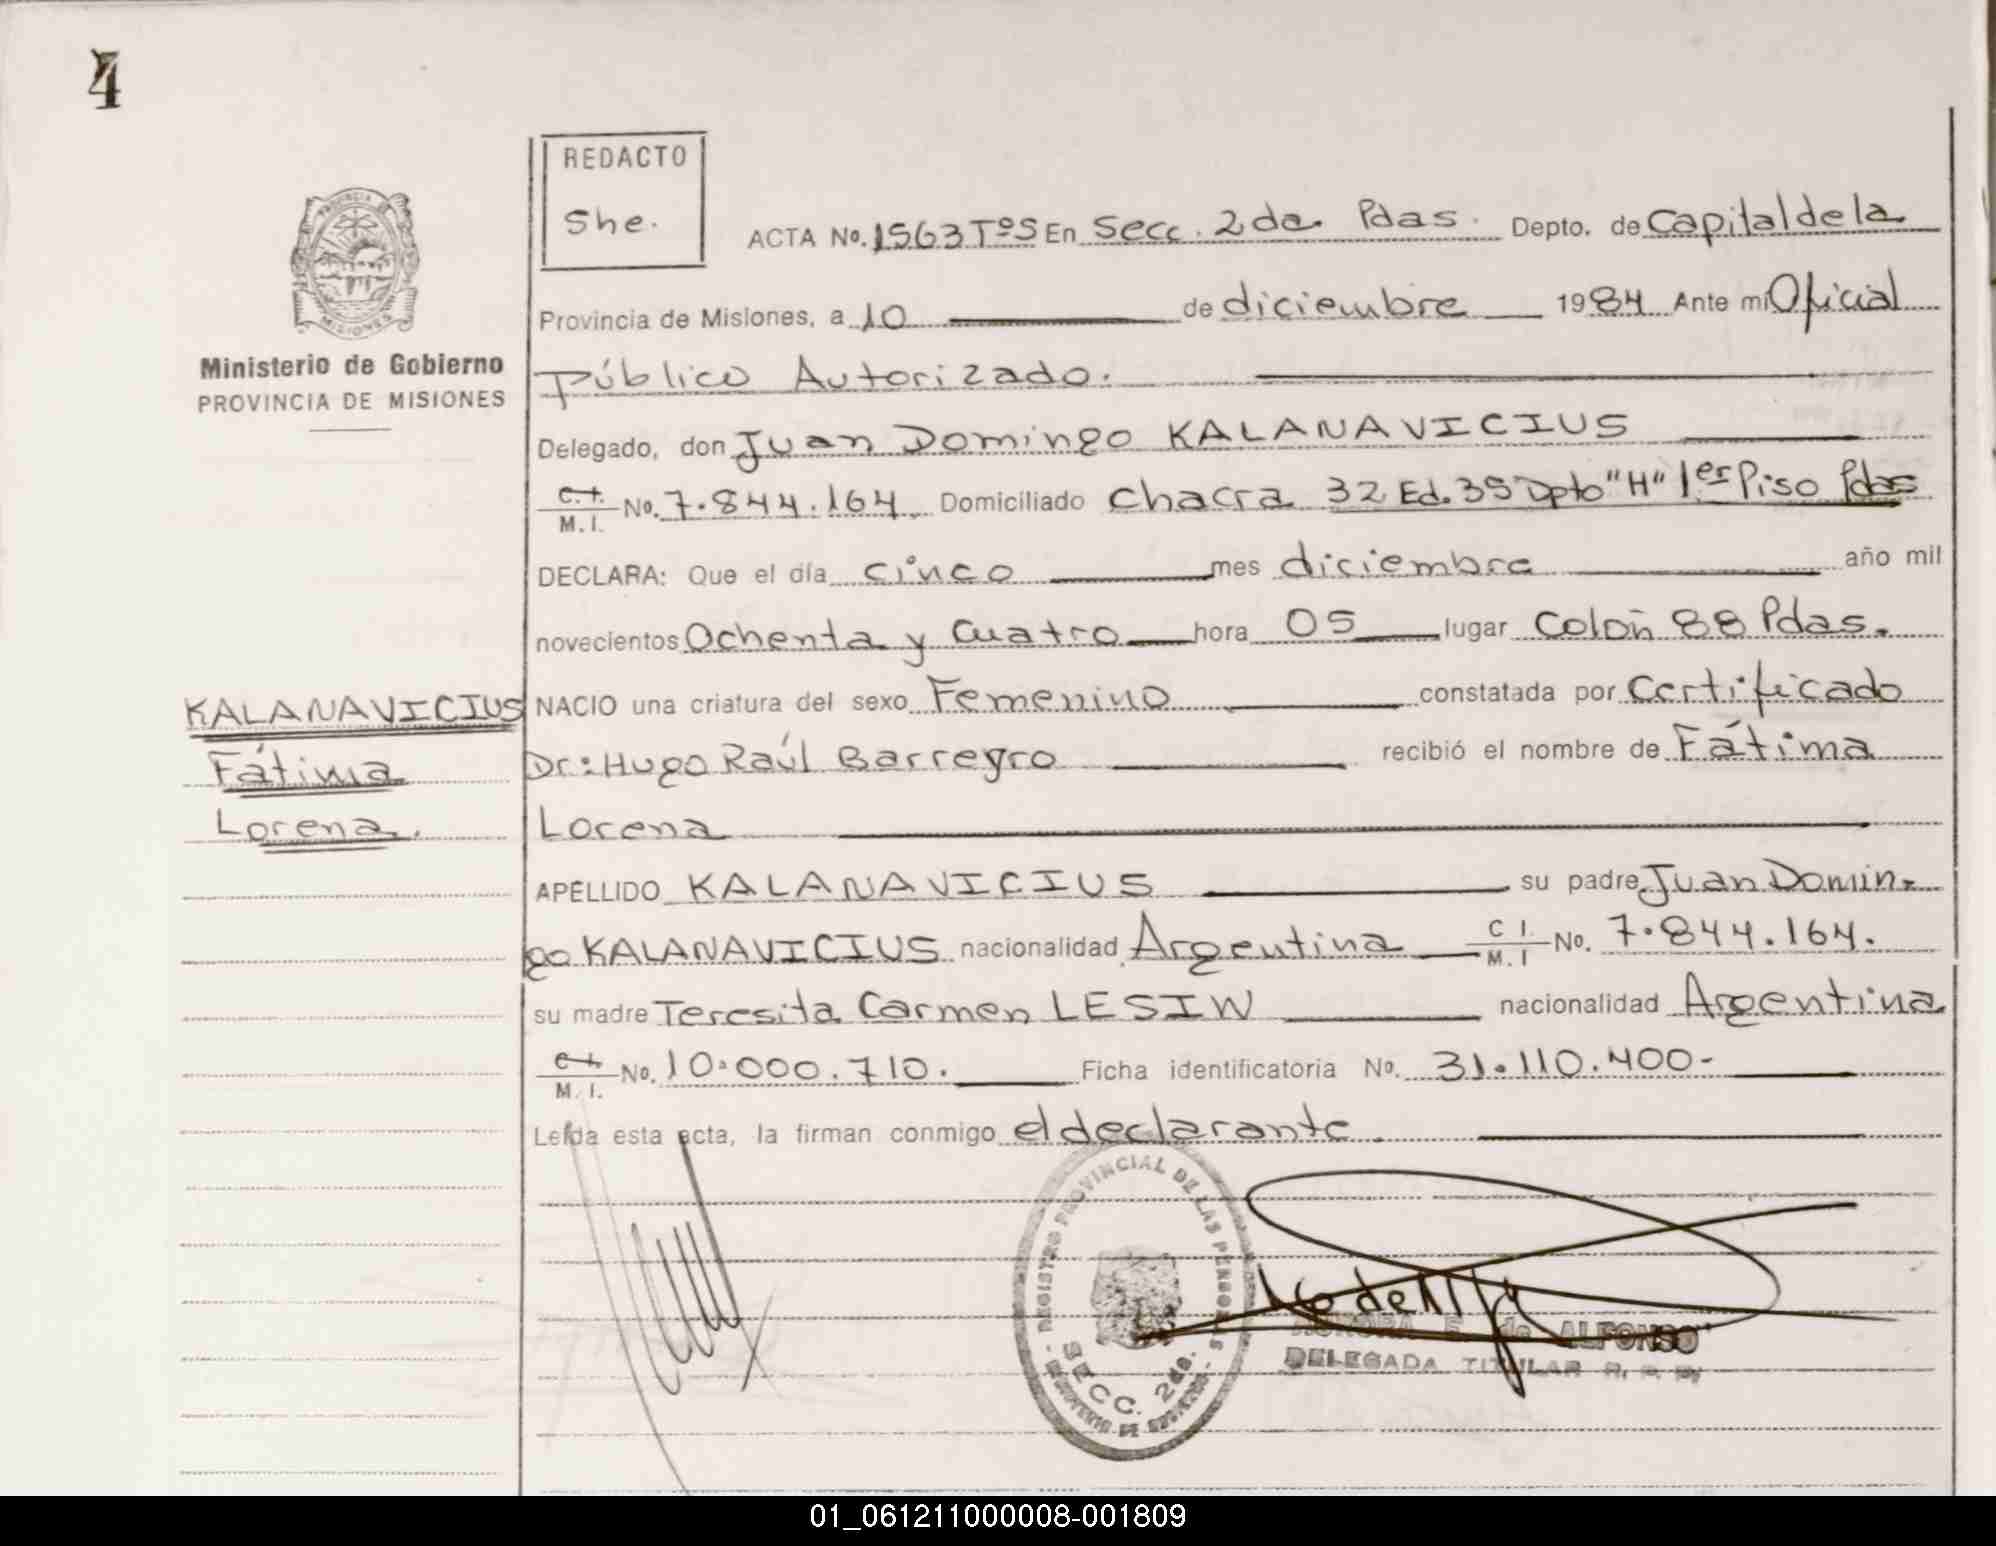 4
REDACTO
She.
ACTA No. 1563 Tº5 En Secc. 2da. Pdas. Depto. de Capital de la
PROVINCIA DE
MISIONES
Provincia de Misiones, a 10 de diciembre 1984 Ante mi Oficial
Ministerio de Gobierno
PROVINCIA DE MISIONES
Público Autorizado.
Delegado, don Juan Domingo KALANAVICIUS
C.I. M.I. No. 7.844.164 Domiciliado Chacra 32 Ed. 35 Dpto "H" 1er Piso Pdas
DECLARA: Que el día cinco mes diciembre año mil
novecientos Ochenta y Cuatro hora 05 lugar Colón 88 Pdas.
KALANAVICIUS
Fátima
Lorena.
NACIO una criatura del sexo Femenino constatada por Certificado
Dr: Hugo Raúl Barreyro recibió el nombre de Fátima
Lorena
APELLIDO KALANAVICIUS su padre Juan Domin-
go KALANAVICIUS nacionalidad Argentina C I. M. I No. 7.844.164.
su madre Teresita Carmen LESIW nacionalidad Argentina
C.I. M.I. No. 10.000.710. Ficha identificatoria No. 31.110.400-
Leída esta acta, la firman conmigo el declarante.
REGISTRO PROVINCIAL DE LAS PERSONAS
SECC. 2da.
MINISTERIO DE GOBIERNO
de ALFONSO
DELEGADA TITULAR R. P. P.
01_061211000008-001809